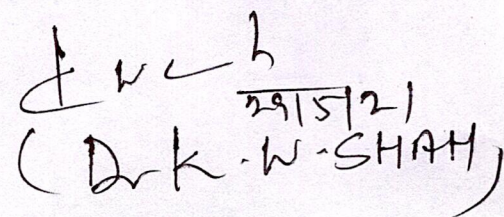 29/5/21
(Dr K. W. SHAH)